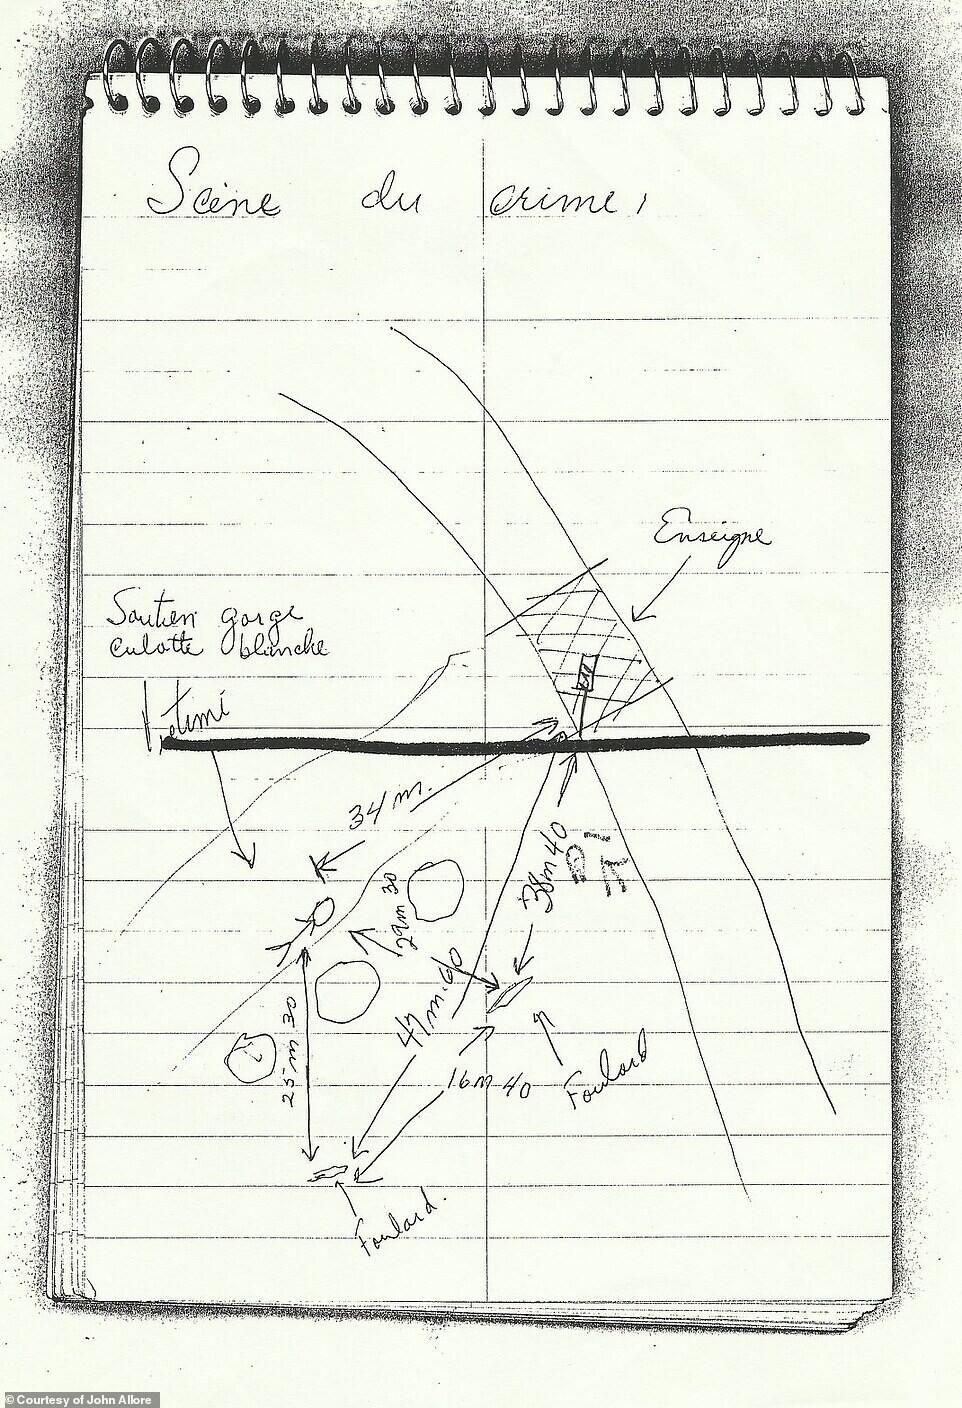 Scène du crime,
Enseigne
Soutien gorge
culotte blanche
Victime
34 m.
38m 40
29m 30
47m.60
25m 30
16m 40
Foulard
Foulard.
© Courtesy of John Allore